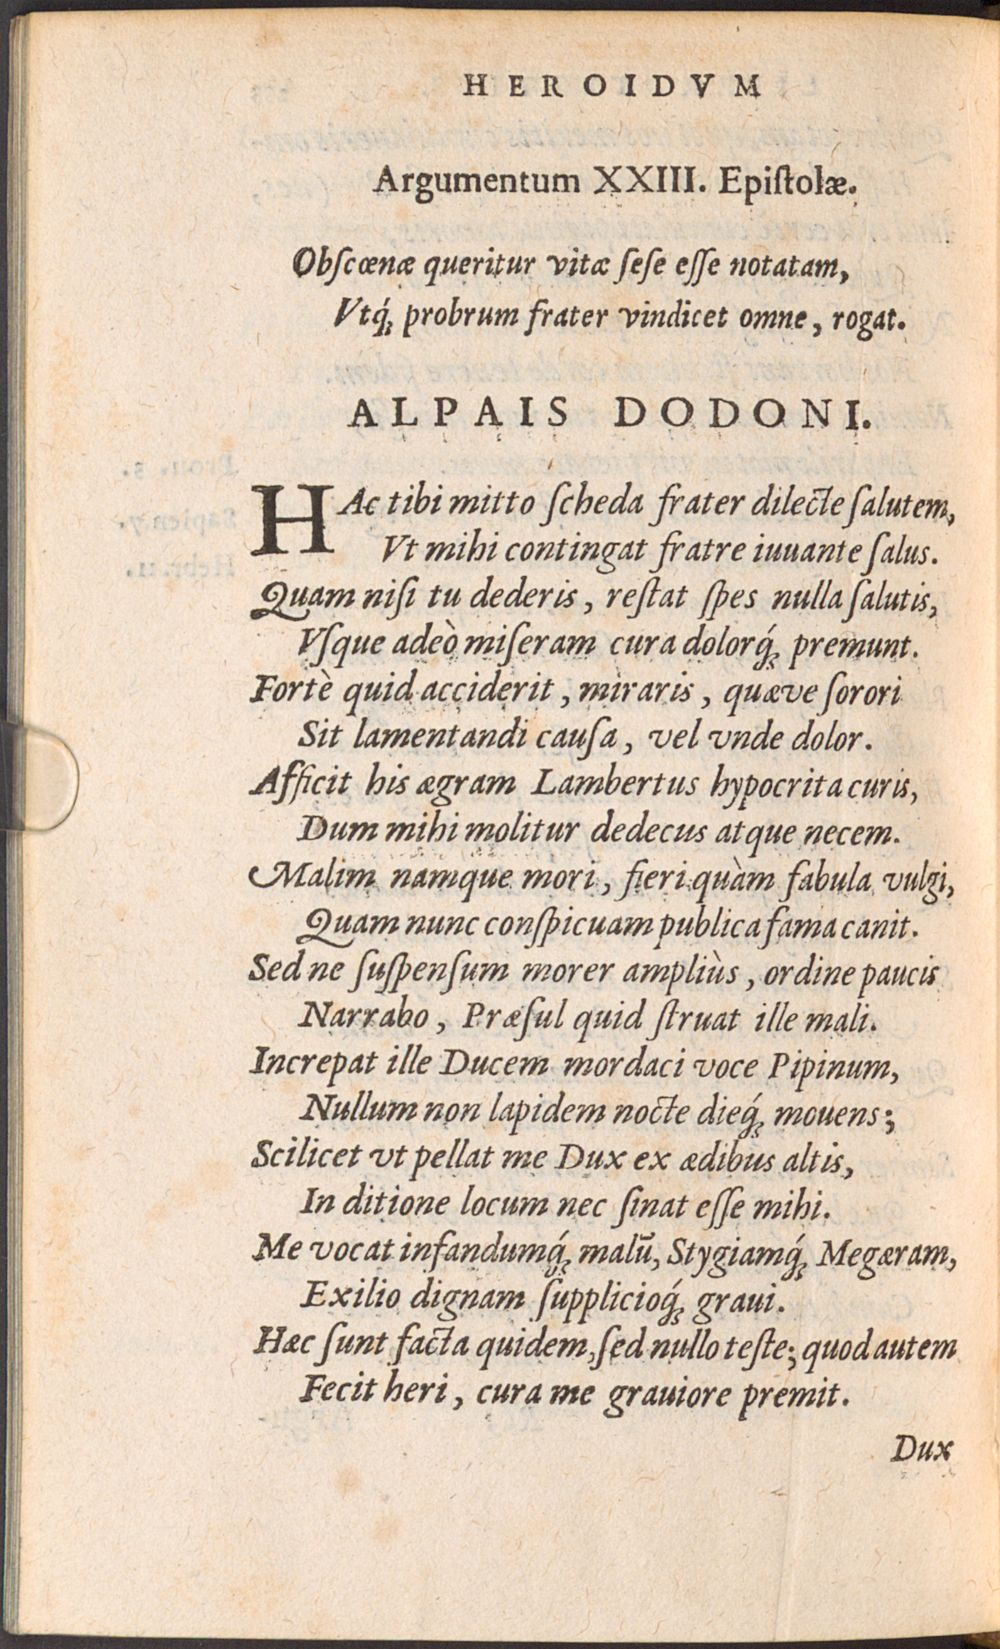 HEROIDVM
Argumentum XXIII. Epiſtolæ.
Obſcœnæ queritur vitæ ſeſe eſſe notatam,
Vtq́; probrum frater vindicet omne, rogat.
ALPAIS DODONI.
HAc tibi mitto ſcheda frater dilecte ſalutem,
Vt mihi contingat fratre iuuante ſalus.
Quam niſi tu dederis, reſtat ſpes nulla ſalutis,
Vſque adeò miſeram cura dolorq́; premunt.
Fortè quid acciderit, miraris, quæve ſorori
Sit lamentandi cauſa, vel vnde dolor.
Afficit his ægram Lambertus hypocrita curis,
Dum mihi molitur dedecus atque necem.
Malim namque mori, fieri quàm fabula vulgi,
Quam nunc conſpicuam publica fama canit.
Sed ne ſuſpenſum morer ampliùs, ordine paucis
Narrabo, Præſul quid ſtruat ille mali.
Increpat ille Ducem mordaci voce Pipinum,
Nullum non lapidem nocte dieq́; mouens;
Scilicet vt pellat me Dux ex ædibus altis,
In ditione locum nec ſinat eſſe mihi.
Me vocat infandumq́; malũ, Stygiamq́; Megæram,
Exilio dignam ſupplicioq́; graui.
Hæc ſunt facta quidem, ſed nullo teſte; quod autem
Fecit heri, cura me grauiore premit.
Dux